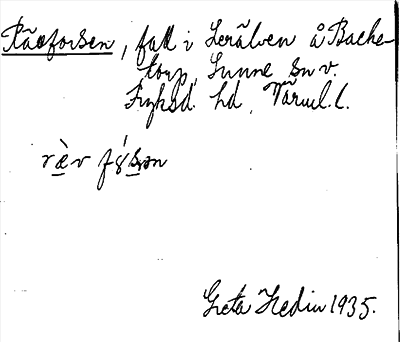 Rävforsen, fall i Lerälven å Backe-
torp, Sunne sn v.
Fryksd. hd, Värml. l.
Greta Hedin 1935.